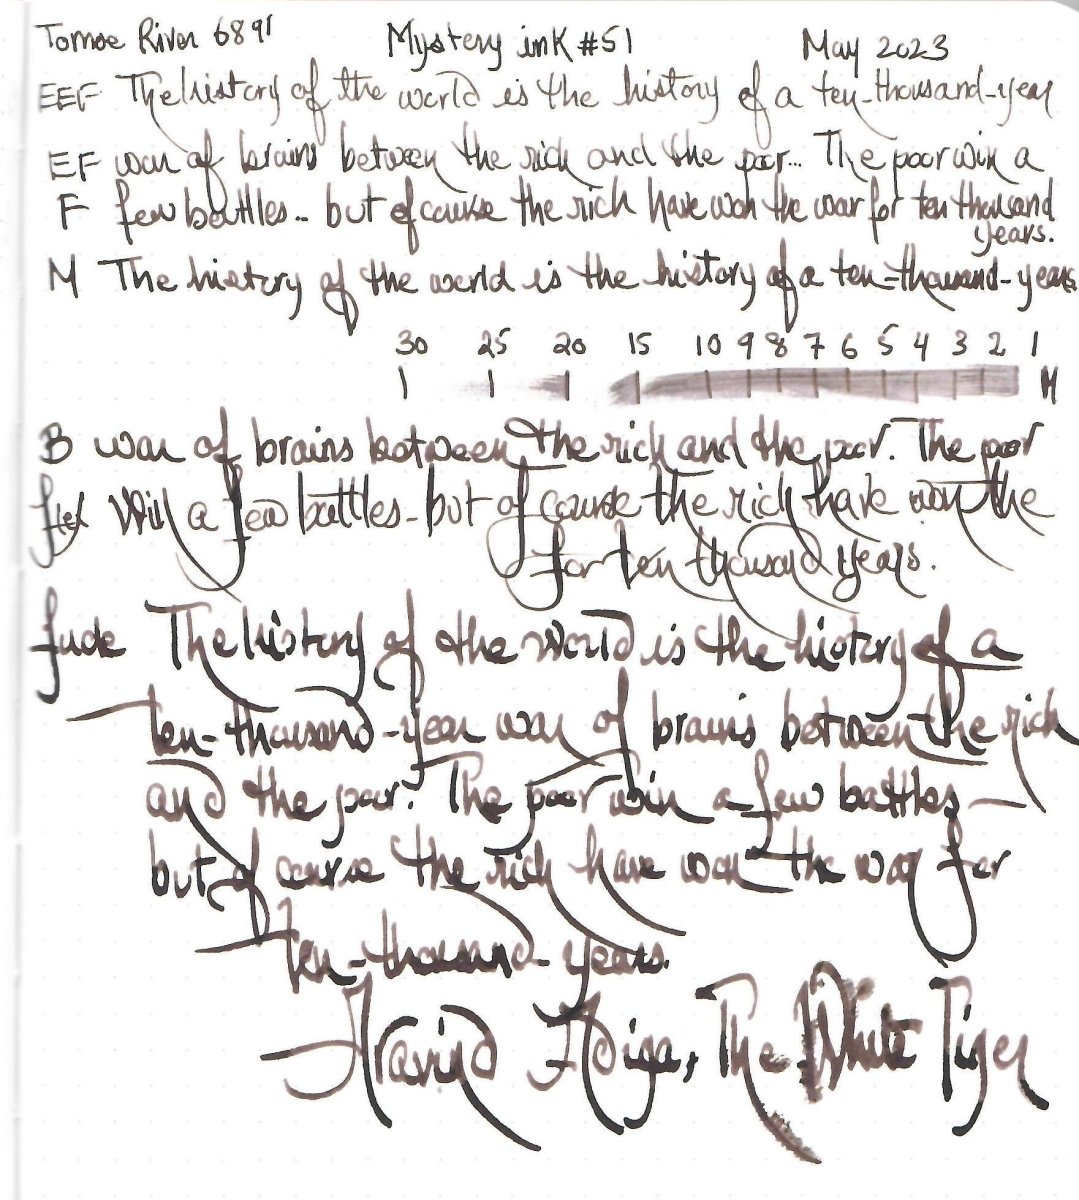 Tomoe River 68gr Mystery ink #51 May 2023
EEF The history of the world is the history of a ten-thousand-year
EF war of brains between the rich and the poor... The poor win a
F few battles.. but of course the rich have won the war for ten thousand
years.
M The history of the world is the history of a ten-thousand-years
30 25 20 15 10 9 8 7 6 5 4 3 2 1
M
B war of brains between the rich and the poor. The poor
flex Win a few battles - but of course the rich have won the
for ten thousand years.
fude The history of the world is the history of a
ten-thousand-year war of brains between the rich
and the poor. The poor win a few battles –
but of course the rich have won the war for
ten-thousand-years.
Aravind Adiga, The White Tiger